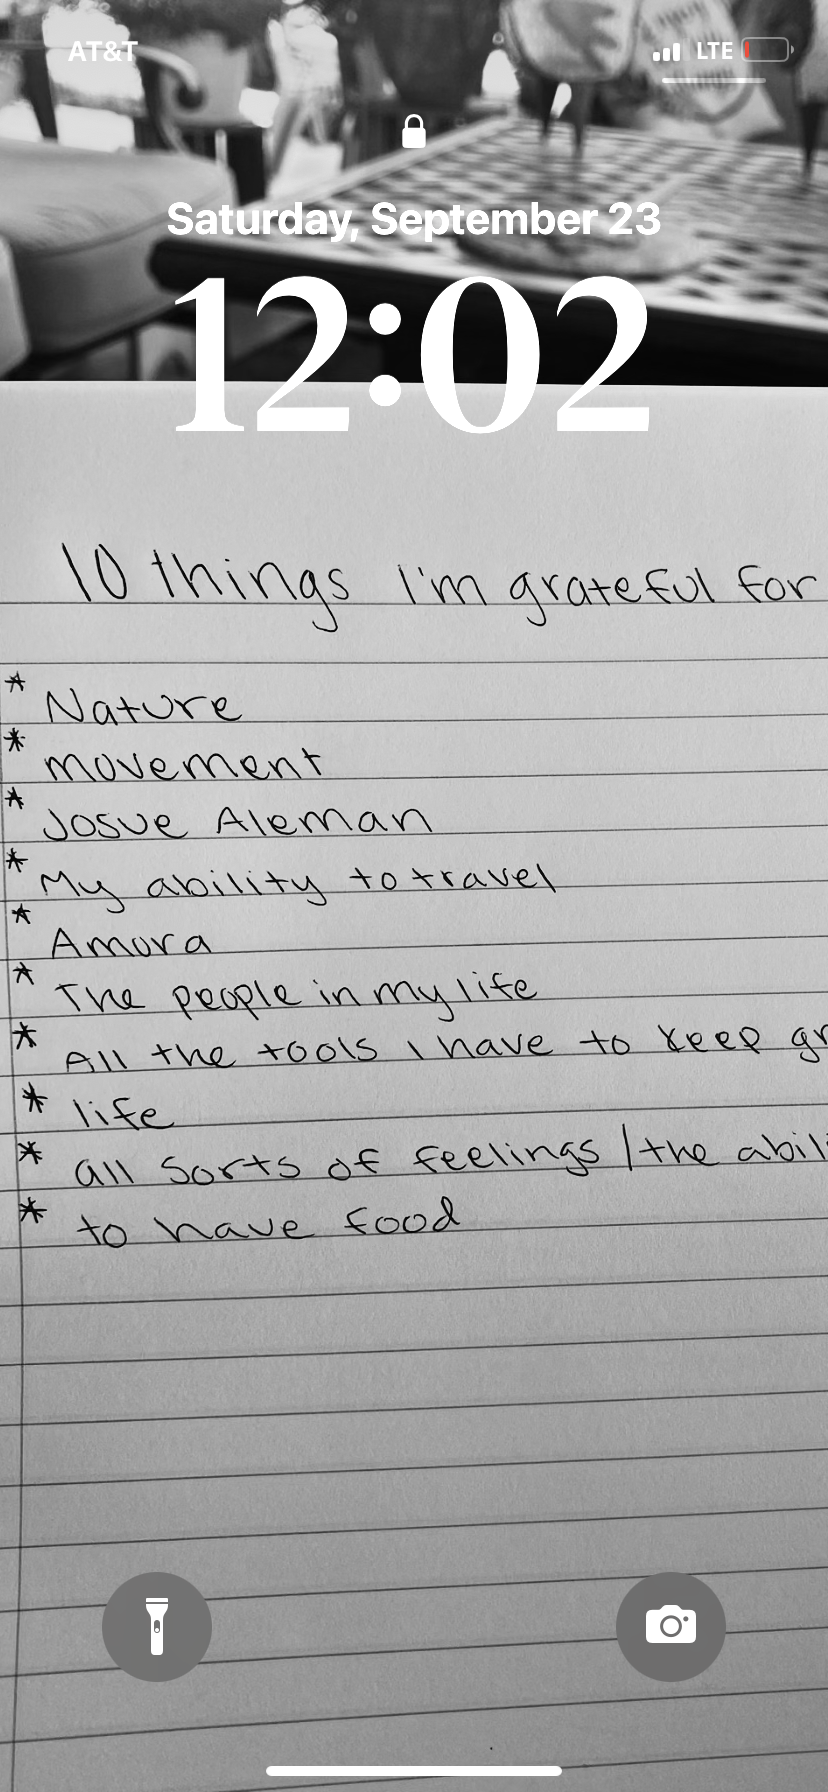 AT&T LTE
Saturday, September 23
12:02
10 things I'm grateful for
* Nature
* movement
* Josue Aleman
* My ability to travel
* Amora
* The people in my life
* All the tools I have to keep gr
* life
* all sorts of feelings / the abili
* to have food